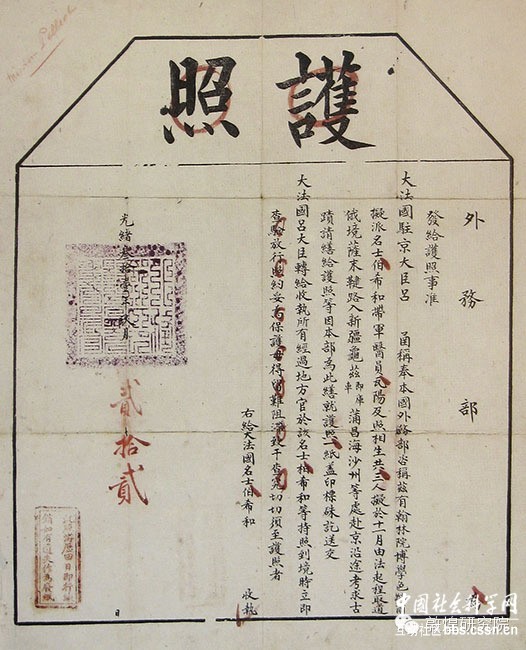 護照
外務部
發給護照事准
大法國駐京大臣呂 函稱奉本國外務部咨稱茲有翰林院博學色
擬派名士伯希和帶軍醫員瓦陽及照相生共三人擬於十一月由法起程取道
俄境薩末鞬路入新疆龜茲即庫車蒲昌海沙州等處赴京沿途考求古
蹟請繕給護照等因本部為此繕就護照一紙蓋印標硃訖送交
大法國呂大臣轉給收執所有經過地方官於該名士伯希和等持照到境時立即
查驗放行照約妥為保護毋得留難阻滯致干查究切切須至護照者
右給大法國名士伯希和 收執
光緒叁拾壹年 月
貳拾貳
日
Mission Pelliot
中国社会科学网
敦煌研究院
互动社区 bbs.cssn.cn